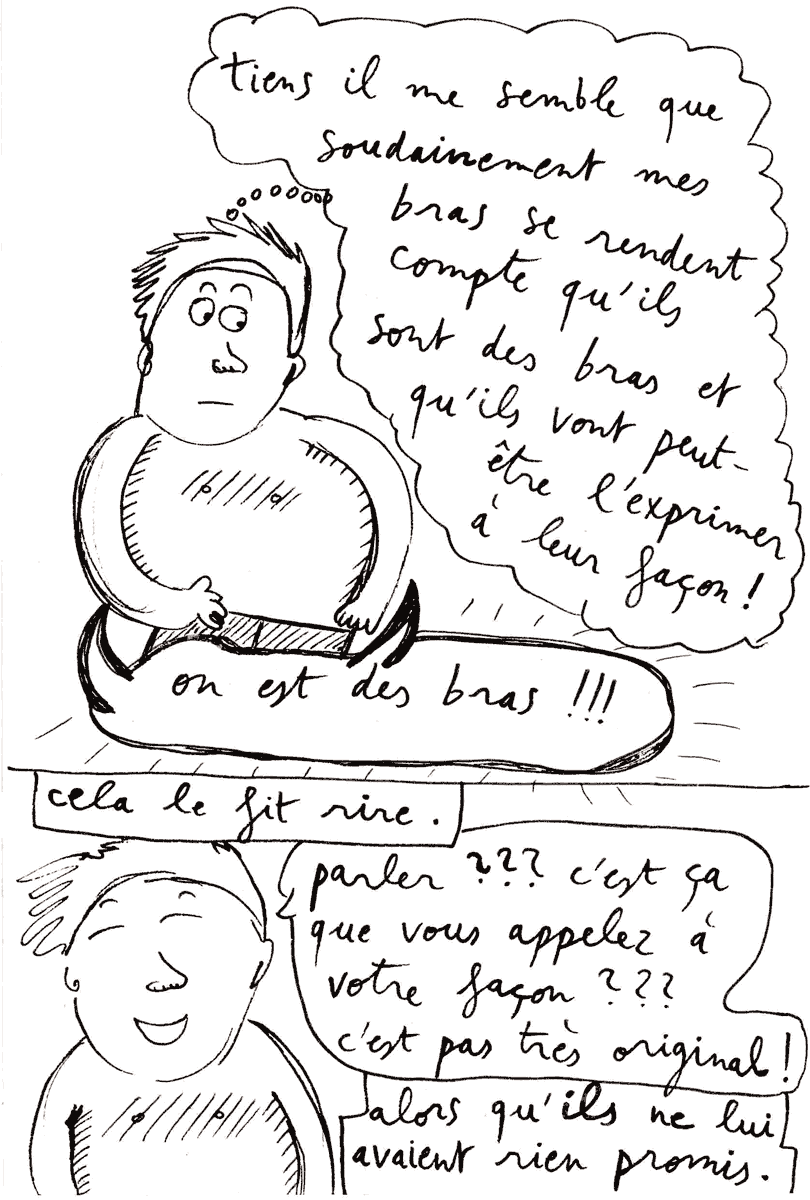 tiens il me semble que
soudainement mes
bras se rendent
compte qu'ils
sont des bras et
qu'ils vont peut-
être l'exprimer
à leur façon !
on est des bras !!!
cela le fit rire.
parler ??? c'est ça
que vous appelez à
votre façon ???
c'est pas très original !
alors qu'ils ne lui
avaient rien promis.